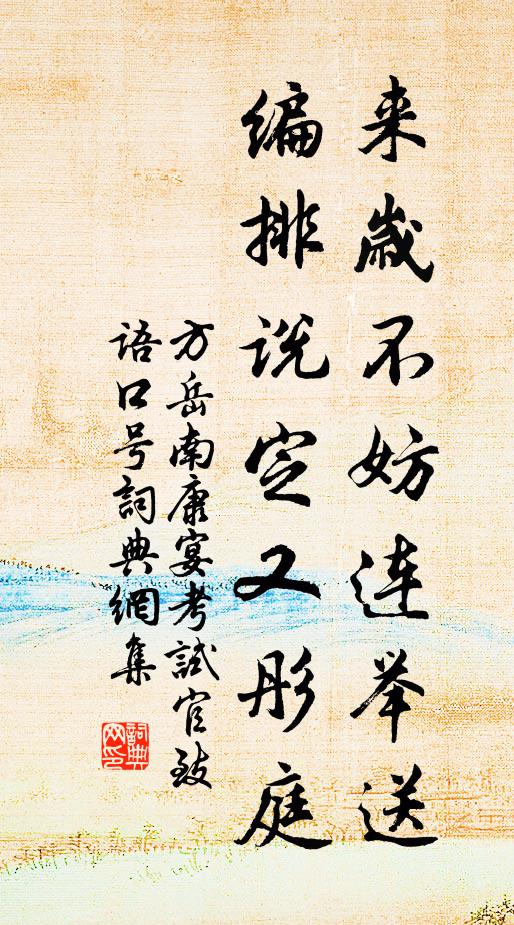 来岁不妨连举送
编排说定又彤庭
方岳南康宴考试官致
语口号词典網集
詞典
网印